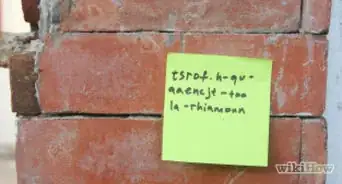 tsrof.h-qu-
qaencjt-too
la-rhiamonn
wikiHow